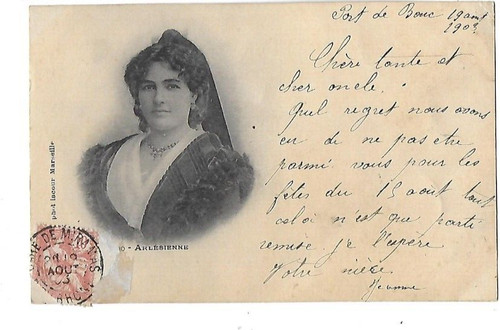 Port de Bouc 19 aout
1903
Chère tante et
cher oncle.
Quel regret nous avons
eu de ne pas etre
parmi vous pour les
fêtes du 15 aout tout
celoi n'est que parti
remise. je l'espère
Votre nièce
Jeanne
phot lacour Marseille
- ARLÉSIENNE
DE MIRAMAS
AOUT
03